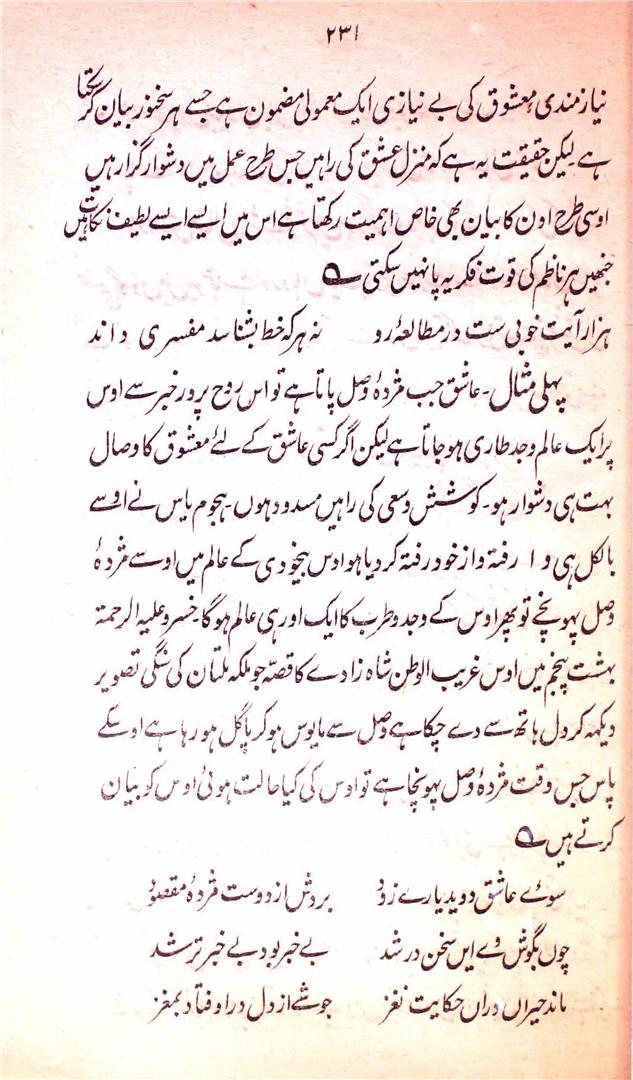 ۲۳۱
نیازمندی، معشوق کی بے نیازی ایک معمولی مضمون ہے جسے ہر سخنور بیان کر سکتا
ہے لیکن حقیقت یہ ہے کہ منزل عشق کی راہیں جس طرح عمل میں دشوار گزار ہیں
اوسی طرح اون کا بیان بھی خاص اہمیت رکھتا ہے اس میں ایسے ایسے لطیف نکات ہیں
جنھیں ہر ناظم کی قوت فکریہ پا نہیں سکتی ؎
ہزار آیت خوبی ست در مطالعۂ رو نہ ہر کہ خط بشناسد مفسری داند
پہلی مثال۔ عاشق جب مژدۂ وصل پاتا ہے تو اس روح پرور خبر سے اوس
پر ایک عالم وجد طاری ہو جاتا ہے لیکن اگر کسی عاشق کے لئے معشوق کا وصال
بہت ہی دشوار ہو۔ کوشش و سعی کی راہیں مسدود ہوں۔ ہجوم یاس نے اوسے
بالکل ہی وا رفتہ و از خود رفتہ کر دیا ہو اوس بیخودی کے عالم میں اوسے مژدۂ
وصل پہونچے تو پھر اوس کے وجد و طرب کا ایک اور ہی عالم ہوگا۔ خسرو علیہ الرحمۃ
بہشت پنجم میں اوس غریب الوطن شاہ زادے کا قصّہ جو ملکہ ملتان کی سنگی تصویر
دیکھ کر دل ہاتھ سے دے چکا ہے وصل سے مایوس ہو کر پاگل ہو رہا ہے اوسکے
پاس جس وقت مژدۂ وصل پہونچا ہے تو اوس کی کیا حالت ہوئی اوس کو بیان
کرتے ہیں ؎
سوے عاشق دوید یارے زود بردش از دوست مژدۂ مقصود
چوں بگوش وے ایں سخن در شد بے خبر بود بے خبر تر شد
ماند حیراں دراں حکایت نغز جوشے از دل در اوفتاد بمغز